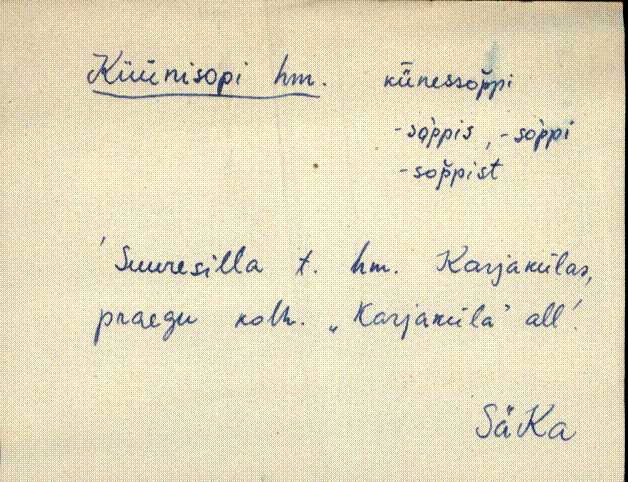 Küünisopi hm. künessop̆pi
-sòppis, -sòppi
-sop̆pist
'Suuresilla t. hm. Karjakülas,
praegu kolh. „Karjaküla" all'.
SäKa